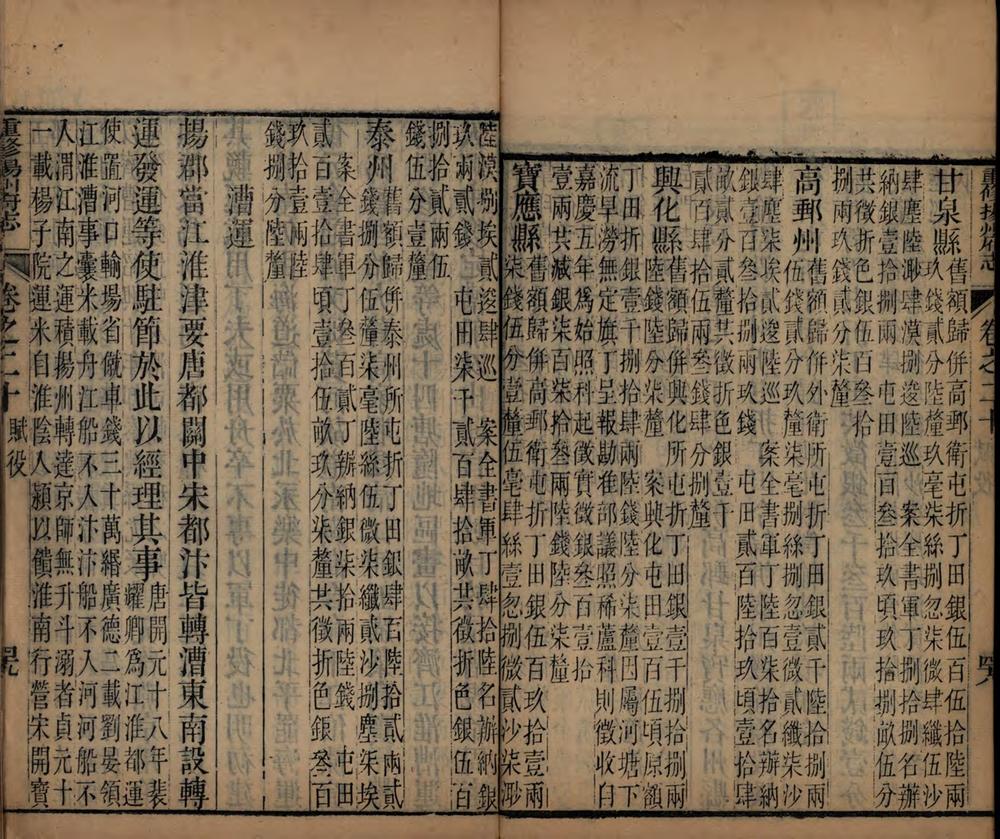 甘泉縣舊額歸併高郵衛屯折丁田銀伍百伍拾陸兩
玖錢貳分陸釐玖毫柒絲捌忽柒微肆纖伍沙
肆塵陸渺肆漠捌逡陸巡 案全書軍丁捌拾捌名辦
納銀壹拾捌兩 屯田壹百叁拾玖頃玖拾捌畝伍分
共徵折色銀伍百叁拾
捌兩玖錢貳分柒釐
高郵州舊額歸併外衛所屯折丁田銀貳千陸拾捌兩
伍錢貳分玖釐柒毫捌絲捌忽壹微貳纖柒沙
肆塵柒埃貳逡陸巡 案全書軍丁陸百柒拾名辦納
銀壹百叁拾捌兩玖錢 屯田貳百陸拾玖頃壹拾肆
畝貳分貳釐共徵折色銀壹千
貳百肆拾伍兩叁錢肆分捌釐
興化縣舊額歸併興化所屯折丁田銀壹千捌拾捌兩
陸錢陸分柒釐 案興化屯田壹百伍頃原額
丁田折銀壹千捌拾肆兩陸錢陸分柒釐因屬河塘下
流旱澇無定旗丁呈報勘准部議照稀蘆科則徵收自
嘉慶五年為始照科起徵實徵銀叁百
壹兩共減銀柒百柒拾叁兩陸錢陸分柒釐
寶應縣舊額歸併高郵衛屯折丁田銀伍百玖拾壹兩
柒錢伍分壹釐伍毫肆絲壹忽捌微貳沙柒渺
陸漠捌埃貳逡肆巡 案全書軍丁肆拾陸名辦納銀
玖兩貳錢 屯田柒千貳百肆拾畝共徵折色銀伍百
捌拾貳兩伍
錢伍分壹釐
泰州舊額歸併泰州所屯折丁田銀肆百陸拾貳兩貳
錢捌分伍釐柒毫陸絲伍微柒纖貳沙捌塵柒埃
案全書軍丁叁百貳丁辦納銀柒拾兩陸錢 屯田
貳百壹拾肆頃壹拾伍畝玖分柒釐共徵折色銀叁百
玖拾壹兩陸
錢捌分陸釐
漕運
揚郡當江淮津要唐都關中宋都汴皆轉漕東南設轉
運發運等使駐節於此以經理其事唐開元十八年裴
耀卿為江淮都運
使置河口輸場省僦車錢三十萬緡廣德二載劉晏領
江淮漕事囊米載舟江船不入汴汴船不入河河船不
入渭江南之運積揚州轉達京師無升斗溺者貞元十
一載楊子院運米自淮陰入潁以饋淮南行營宋開寶
重修揚州府志 卷之二十 賦役